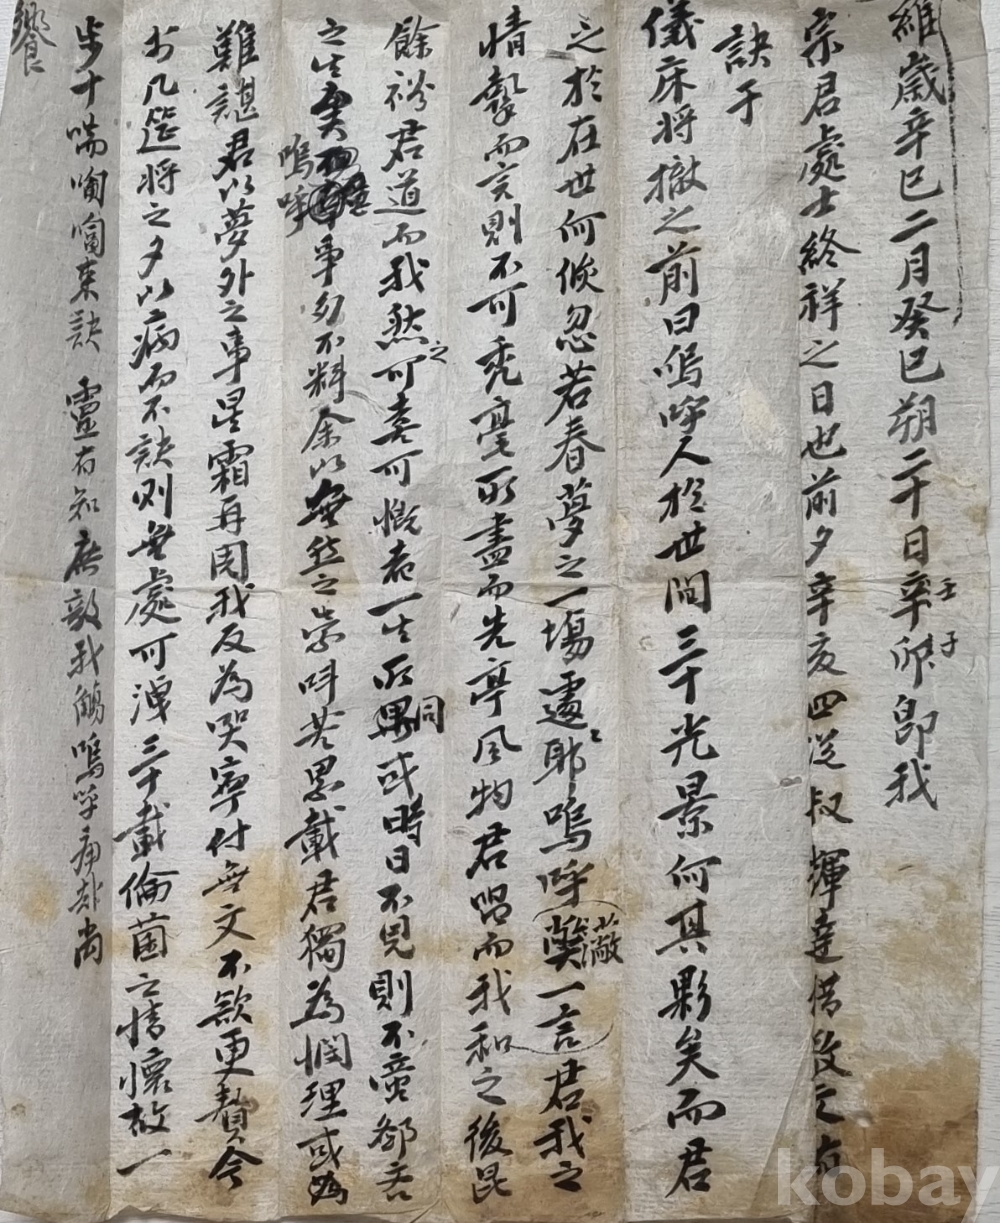 維歲辛巳二月癸巳朔二十日辛卯壬子卽我
宗君處士終祥之日也前夕辛亥四從叔 輝達借
訣于
儀床將撤之前曰嗚呼人於世間三十光景何其夥矣而君
之於在世何倐忽若春夢之一場遽〻耶嗚呼 蔽一言君我之
情摯而言則不可禿毫所盡而先亭風物君唱而我和之後昆
餘裕君道而我然之可喜可慨者一生所同或時日不見則不啻
之生矣嗚呼事勿不料余以無然之祟 君獨爲憫理或
難諶君以夢外之事星霜再周我反爲哭寧付無文不欲更贅今
於几筵將之夕以病而不訣則無處可洩三十載倫 之情懷故一
步十喘 來訣 靈有知庶歆我觴嗚呼痛哉尚
饗
kobay